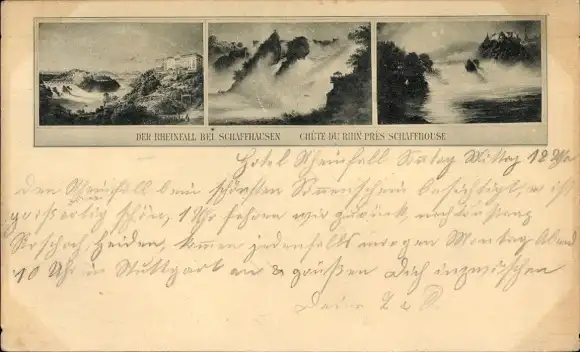 DER RHEINFALL BEI SCHAFFHAUSEN CHÛTE DU RHIN PRÈS SCHAFFHOUSE
Hotel Rheinfall Sontag Mittag 12 Uhr
Den Rheinfall beim schönsten Sonnenschein besichtigt, es ist
großartig schön, 1 Uhr fahren wir zurück, nach
Rorschach, Heiden, kommen jedenfalls morgen Montag Abend
10 Uhr in Stuttgart an & grüßen Dich inzwischen
Deine